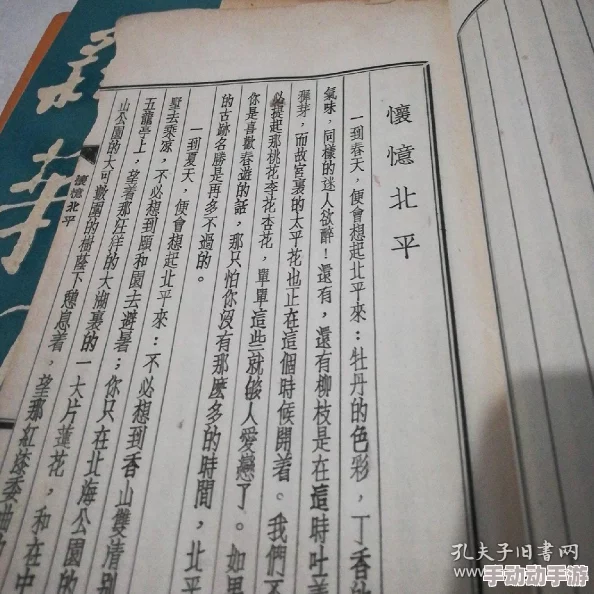 懷憶北平
一到春天，便會想起北平來：牡丹的色彩，丁香
氣味，同樣的迷人欲醉！還有，還有柳枝是在這時吐
穉芽，而故宮裏的太平花也正在這個時候開着。我們
提起那桃花李花杏花，單單這些就够人愛戀了。如果
你是喜歡春遊的話，那只怕你沒有那麽多的時間，北平
的古跡名勝是再多不過的。
一到夏天，便會想起北平來：不必想到香山雙清別
墅去乘凉，不必想到頤和園去避暑；你只在北海公園的
五龍亭上，望着那汪洋的大湖裏的一大片蓮花，和在中
山公園的大可數圍的樹蔭下憩息着，望那紅漆
懷憶北平
孔夫子旧書网
手动动手游